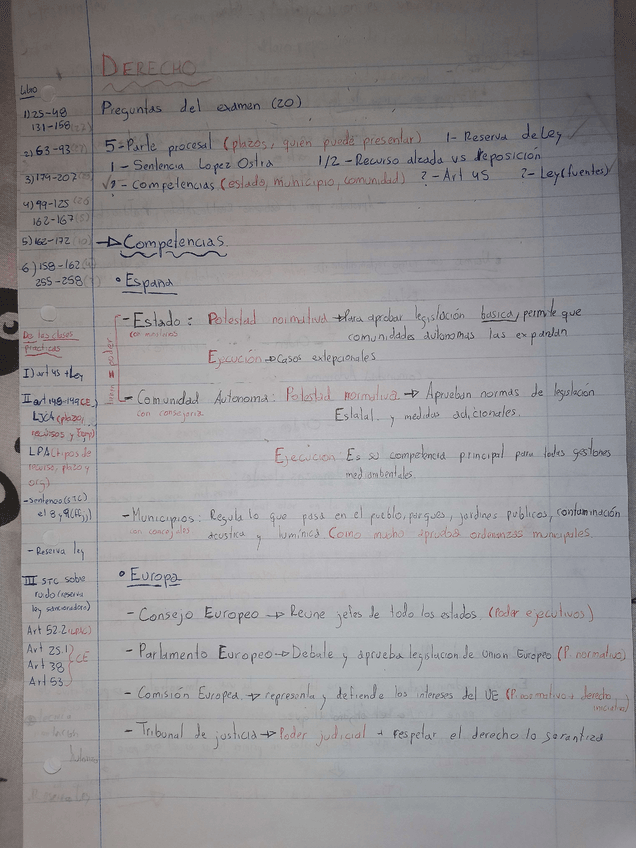 DERECHO
Preguntas del examen (20)
5 - Parte procesal (plazos, quién puede presentar) 1 - Reserva de Ley
1 - Sentencia Lopez Ostra 1/2 - Recurso alzada vs reposición
? - Competencias (estado, municipio, comunidad) ? - Art 45 ? - Ley (fuentes)
Libro
1) 25-48
131-158
2) 63-93
3) 174-207
4) 99-125
162-167
5) 162-172
6) 158-162
255-258
De las clases
prácticas
I) art 45 + Ley
II art 148-149 CE
LJCA (plazo,
recursos y
LPA (tipos de
recurso, plazo y
org)
- sentencia (STC)
- Reserva ley
III STC sobre
ruido (reserva
ley sancionadora)
Art 52.2
Art 25.1
Art 38 CE
Art 53
→ Competencias
• España
- Estado: Potestad normativa → Para aprobar legislación basica, permite que
con ministerios comunidades autonomas las expandan
Ejecución → Casos exlepcionales
- Comunidad Autonoma: Potestad normativa → Aprueban normas de legislación
con consejería Estatal y medidas adicionales.
Ejecucion Es su competencia principal para todas gestiones
mediambentales.
- Municipios: Regula lo que pasa en el pueblo, parques, jardines publicos, contaminación
con concejales acustica y lumínica Como mucho aprueba ordenanzas municipales.
• Europa
- Consejo Europeo → Reune jefes de todo los estados (Poder ejecutivos)
- Parlamento Europeo → Debate y aprueba legislacion de Union Europeo (P. normativo)
- Comisión Europea → representa y defiende los intereses del UE (P. normativo y derecho
iniciativa)
- Tribunal de justicia → Poder judicial + respetar el derecho lo garantiza